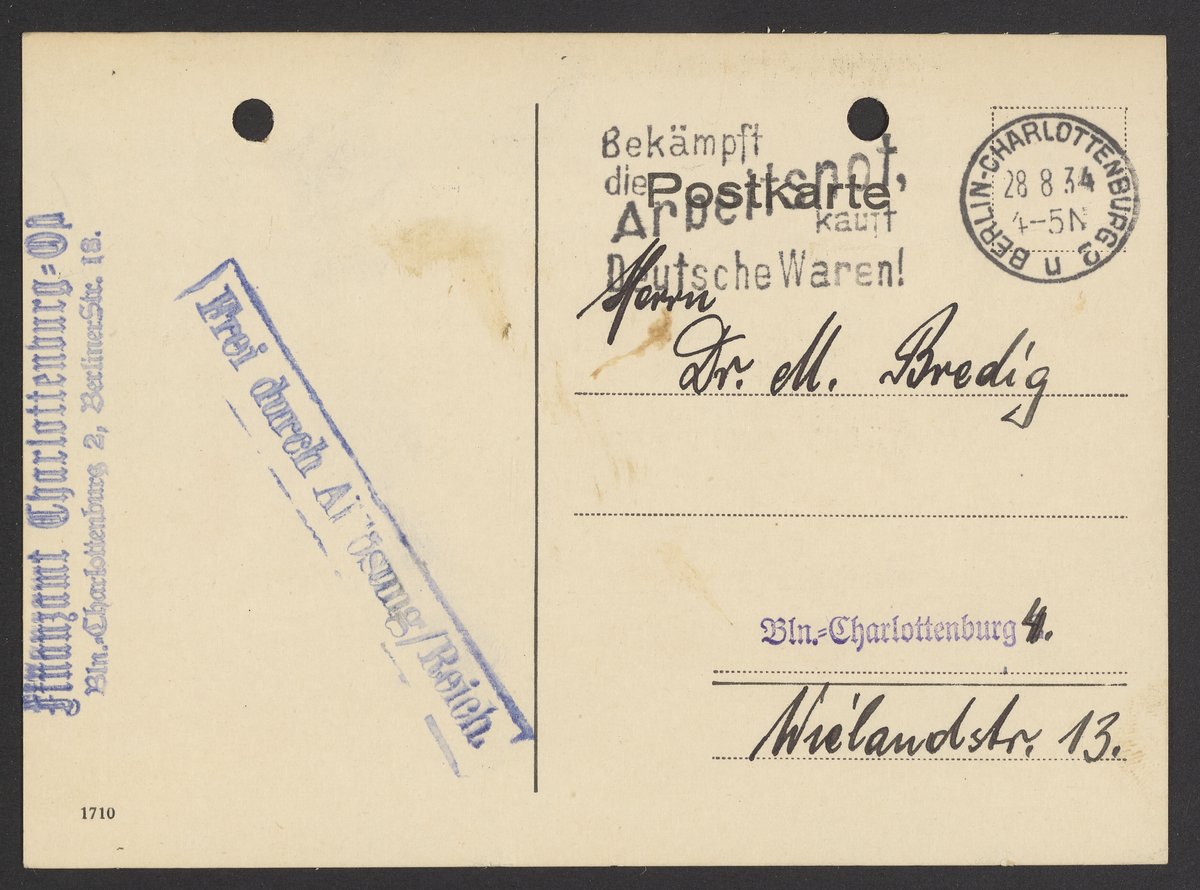 Finanzamt Charlottenburg-Ost
Bln.-Charlottenburg 2, Berliner Str. 18.
Frei durch Ablösung/Reich.
1710
Postkarte
Bekämpft
die Arbeitsnot,
kauft
Deutsche Waren!
BERLIN-CHARLOTTENBURG 2 n
28 8 34
4-5N
Herrn
Dr. M. Bredig
Bln.-Charlottenburg 4.
Wielandstr. 13.